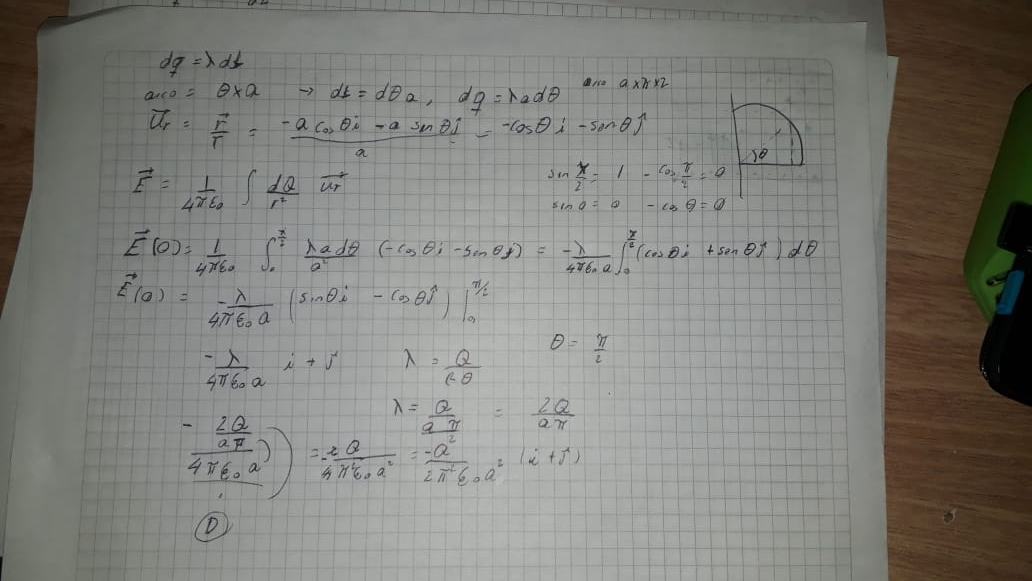 dq = λ dl
arco = θ x a → dl = dθ a, dq = λ a dθ arco a x π x 2
U⃗r = r⃗/r = (-a cosθ i - a senθ j)/a = -cosθ i - senθ j
θ
E⃗ = 1/(4πε₀) ∫ dQ/r² u⃗r
sen π/2 = 1 - cos π/2 = 0
sen 0 = 0 - cos θ = 0
E⃗(0) = 1/(4πε₀) ∫₀^(π/2) (λ a dθ)/a² (-cosθ i - senθ j) = -λ/(4πε₀ a) ∫₀^(π/2) (cosθ i + senθ j) dθ
E⃗(0) = -λ/(4πε₀ a) (senθ i - cosθ j) |₀^(π/2)
θ = π/2
-λ/(4πε₀ a) i + j λ = Q/(R θ)
λ = Q/(a π/2) = 2Q/(aπ)
- (2Q/(aπ))/(4πε₀ a) = -2Q/(4π²ε₀ a²) = -Q/(2π²ε₀ a²) (i + j)
D